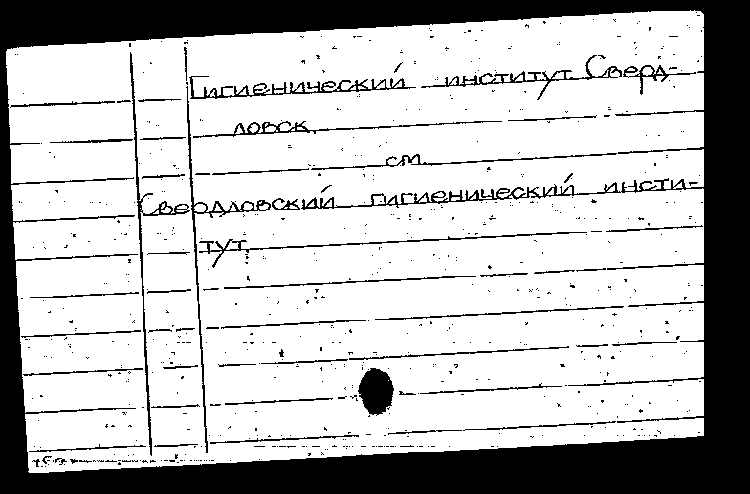 Гигиенический институт. Сверд-
ловск.
см.
Свердловский гигиенический инсти-
тут.